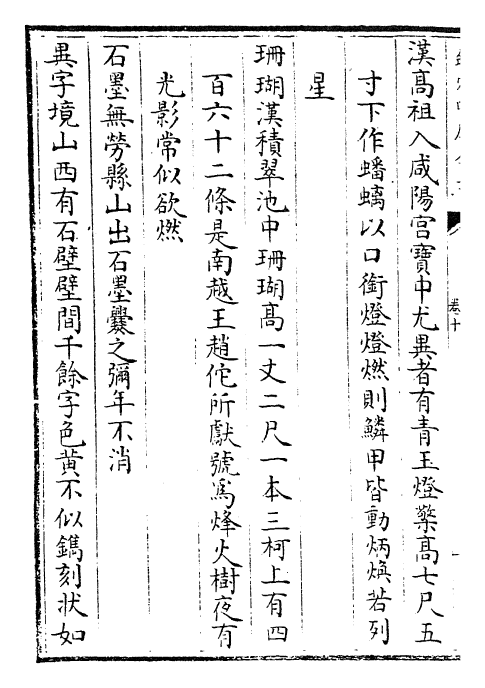 漢髙祖入咸陽宫寶中尤異者有青玉燈檠髙七尺五
寸下作蟠螭以口銜燈燈燃則鱗甲皆動炳煥若列
星
珊瑚漢積翠池中珊瑚髙一丈二尺一本三柯上有四
百六十二條是南越王趙佗所獻號為烽火樹夜有
光影常似欲燃
石墨無勞縣山出石墨爨之彌年不消
異字境山西有石壁壁間千餘字色黄不似鐫刻狀如
卷十